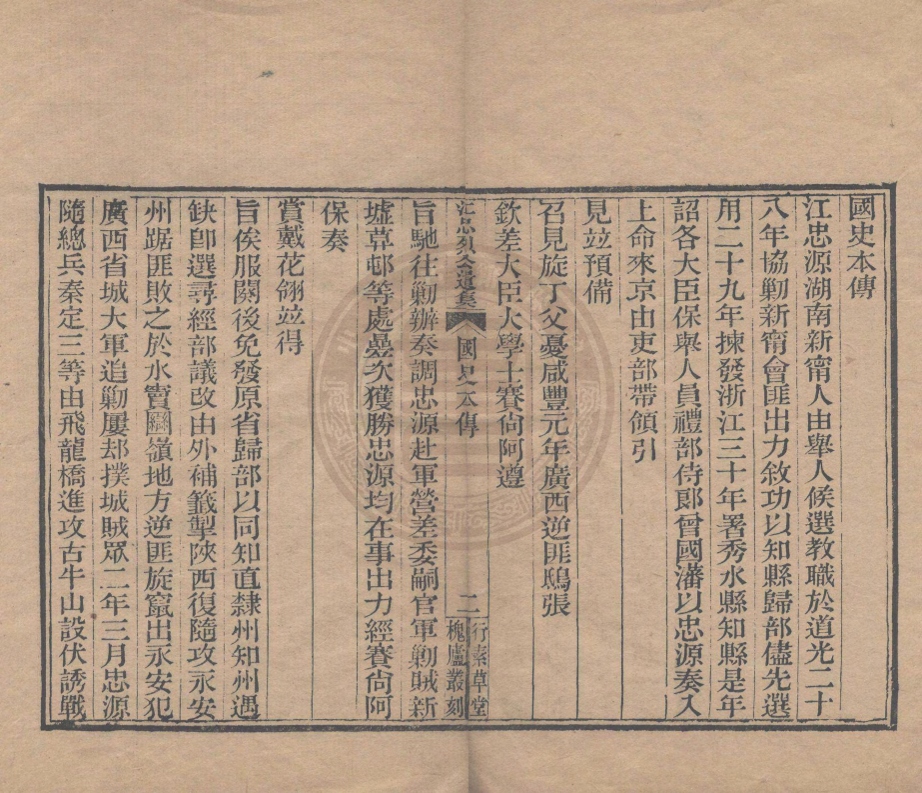 國史本傳
江忠源湖南新甯人由舉人候選教職於道光二十
八年協勦新甯會匪出力敘功以知縣歸部儘先選
用二十九年揀發浙江三十年署秀水縣知縣是年
詔各大臣保舉人員禮部侍郎曾國藩以忠源奏入
上命來京由吏部帶領引
見竝預備
召見旋丁父憂咸豐元年廣西逆匪鴟張
欽差大臣大學士賽尙阿遵
江忠烈公遺集 國史本傳 二 行素草堂
槐廬叢刻
旨馳往勦辦奏調忠源赴軍營差委嗣官軍勦賊新
墟草邨等處疊次獲勝忠源均在事出力經賽尙阿
保奏
賞戴花翎竝得
旨俟服闋後免發原省歸部以同知直隸州知州遇
缺卽選尋經部議改由外補籤掣陝西復隨攻永安
州踞匪敗之於水竇嶺地方逆匪旋竄出永安犯
廣西省城大軍追勦屢却撲城賊眾二年三月忠源
隨總兵秦定三等由飛龍橋進攻古牛山設伏誘戰